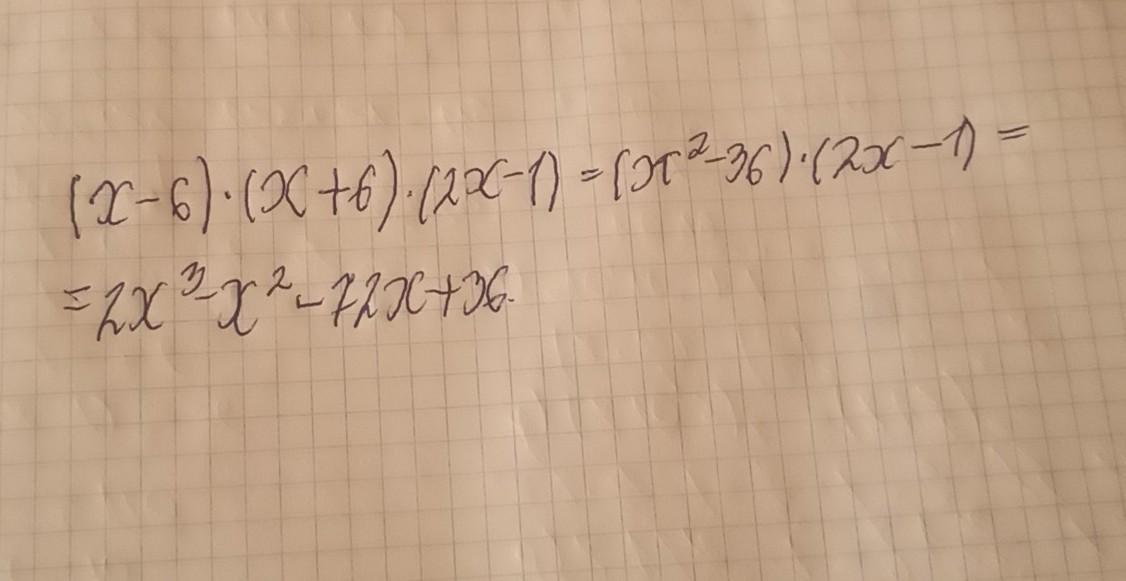 (x-6)·(x+6)·(2x-1)=(x²-36)·(2x-1)=
=2x³-x²-72x+36.